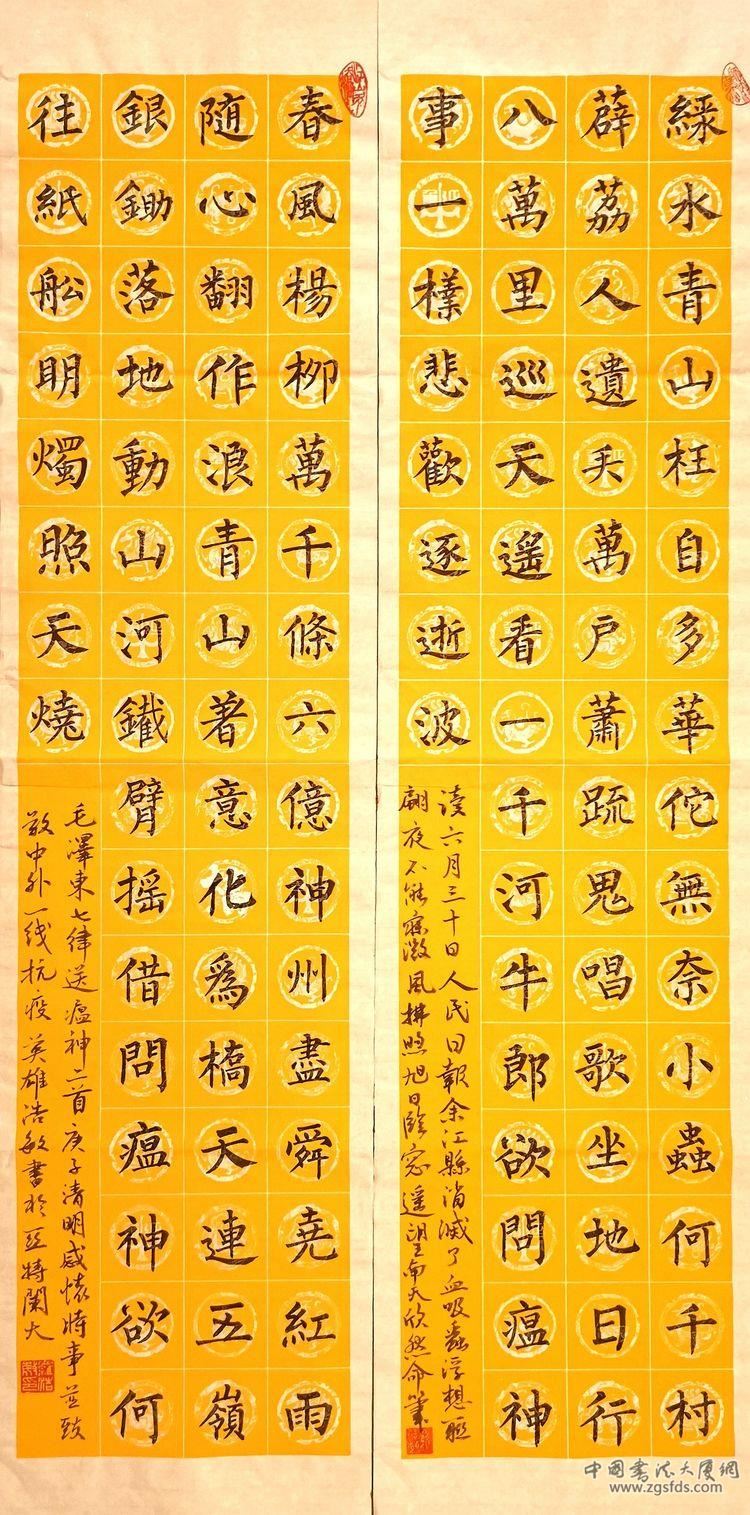 綠水青山枉自多華佗無奈小蟲何千村
薜荔人遺矢萬户蕭疏鬼唱歌坐地日行
八萬里巡天遥看一千河牛郎欲問瘟神
事一樣悲歡逐逝波
读六月三十日人民日報余江縣消滅了血吸蟲浮想聯
翩夜不能寐微風拂煦旭日臨窗遥望南天欣然命筆
春風楊柳萬千條六億神州盡舜堯紅雨
随心翻作浪青山著意化爲橋天連五嶺
銀鋤落地動山河鐵臂摇借問瘟神欲何
往紙船明燭照天燒
毛澤東七律送瘟神二首庚子清明感懷時事並致
敬中外一线抗疫英雄浩敏書於亞特蘭大
中國書法大廈網
www.zgsfds.com